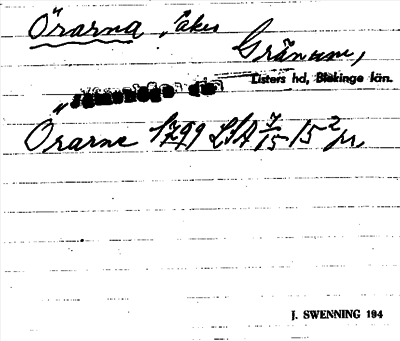 Örarna, åker
Gränum,
Listers hd, Blekinge län.
Örarne 1799 LSA 7/15 15²
J. SWENNING 194